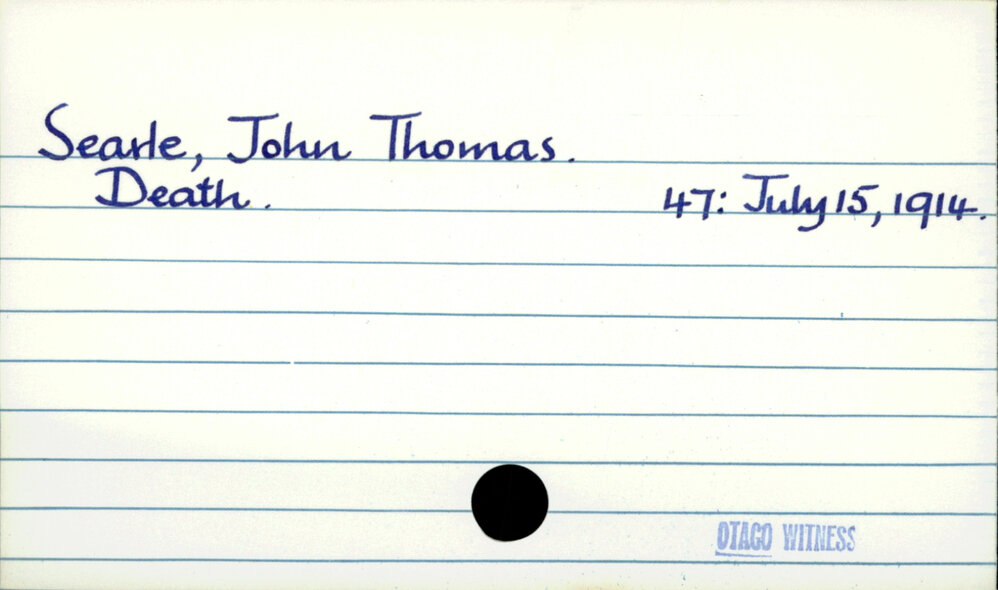 Searle, John Thomas.
Death. 47: July 15, 1914.
OTAGO WITNESS